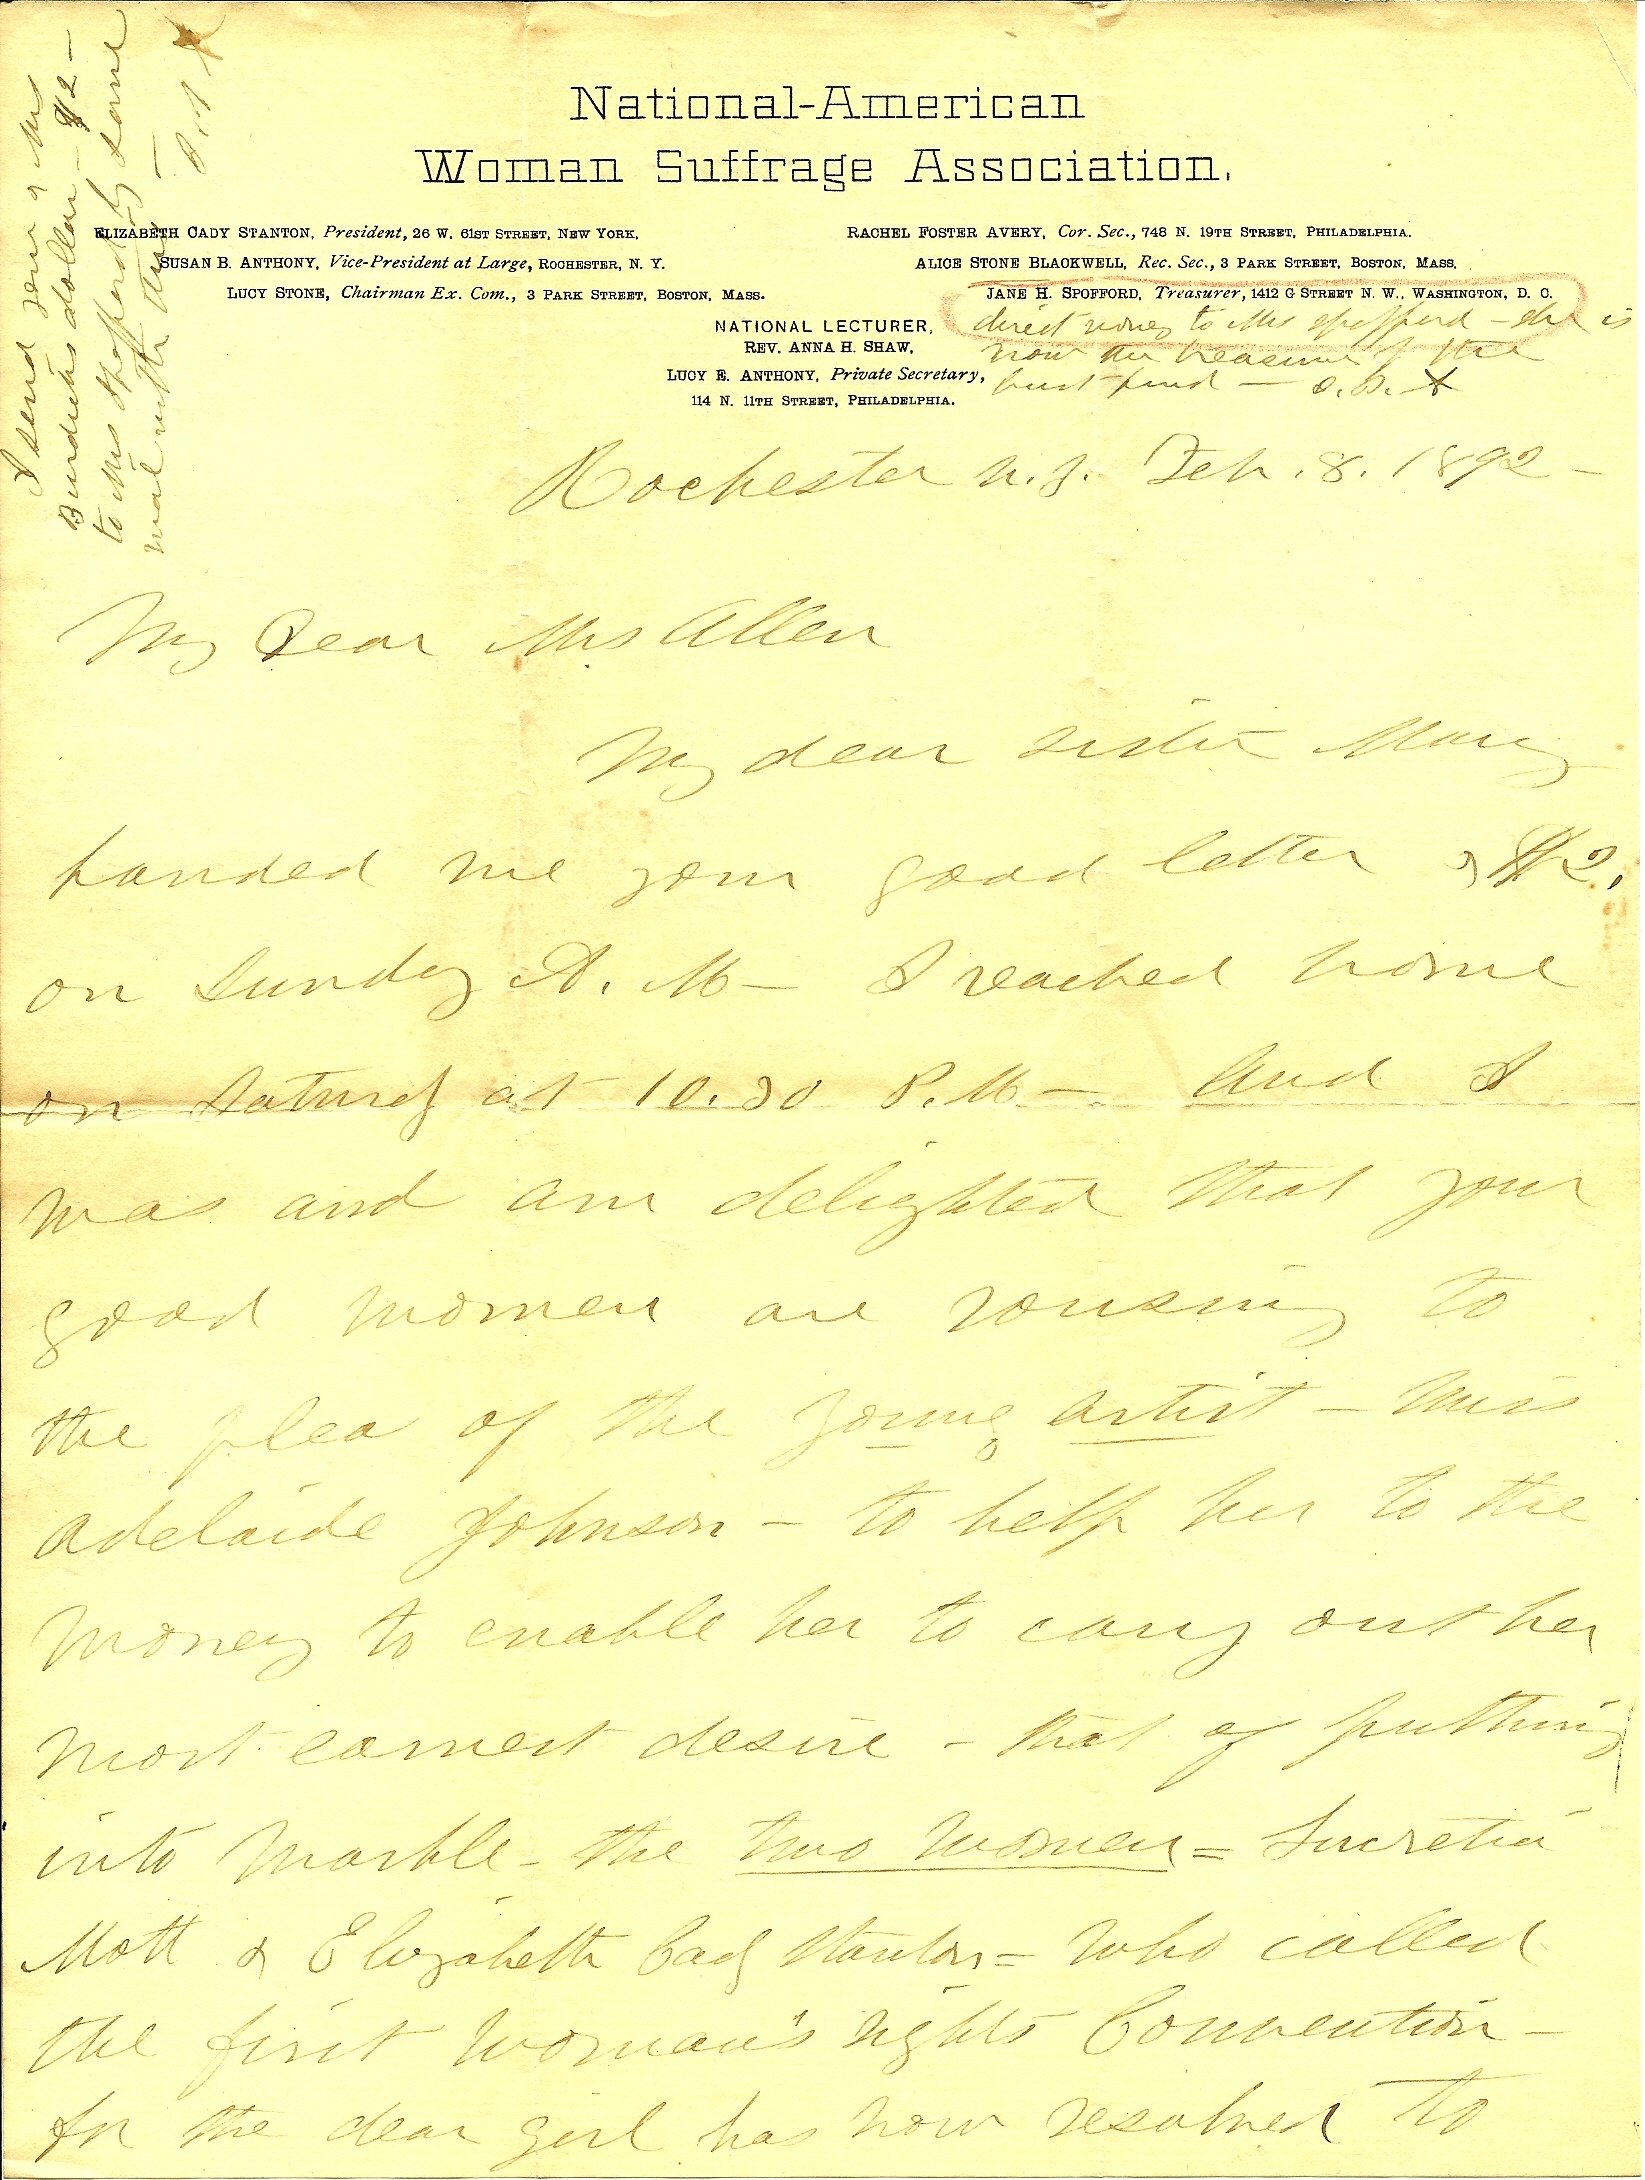 National-American
Woman Suffrage Association.
ELIZABETH CADY STANTON, President, 26 W. 61ST STREET, NEW YORK.
SUSAN B. ANTHONY, Vice-President at Large, ROCHESTER, N. Y.
LUCY STONE, Chairman Ex. Com., 3 PARK STREET, BOSTON, MASS.
RACHEL FOSTER AVERY, Cor. Sec., 748 N. 19TH STREET, PHILADELPHIA.
ALICE STONE BLACKWELL, Rec. Sec., 3 PARK STREET, BOSTON, MASS.
JANE H. SPOFFORD, Treasurer, 1412 G STREET N. W., WASHINGTON, D. C.
NATIONAL LECTURER,
REV. ANNA H. SHAW,
LUCY E. ANTHONY, Private Secretary,
114 N. 11TH STREET, PHILADELPHIA.
direct money to Mrs Spofford - she is
now the treasurer of the
bust fund - S. B. A
I send your & Mrs
Burdicks dollar - $2 -
to Mrs Spofford by same
mail with this -
S. B. A
Rochester N. Y. Feb. 8. 1892 -
My Dear Mrs Allen
My dear sister Mary
handed me your good letter & $2.
on Sunday A. M - I reached home
on Saturdy at 10.30 P. M - And I
was and am delighted that your
good women are rousing to
the plea of the young artist - Miss
Adelaide Johnson - to help her to the
money to enable her to carry out her
most earnest desire - that of putting
into Marble - the two women = Lucretia
Mott & Elizabeth Cady Stanton = who called
the first Woman's rights Convention -
for the dear girl has now resolved to